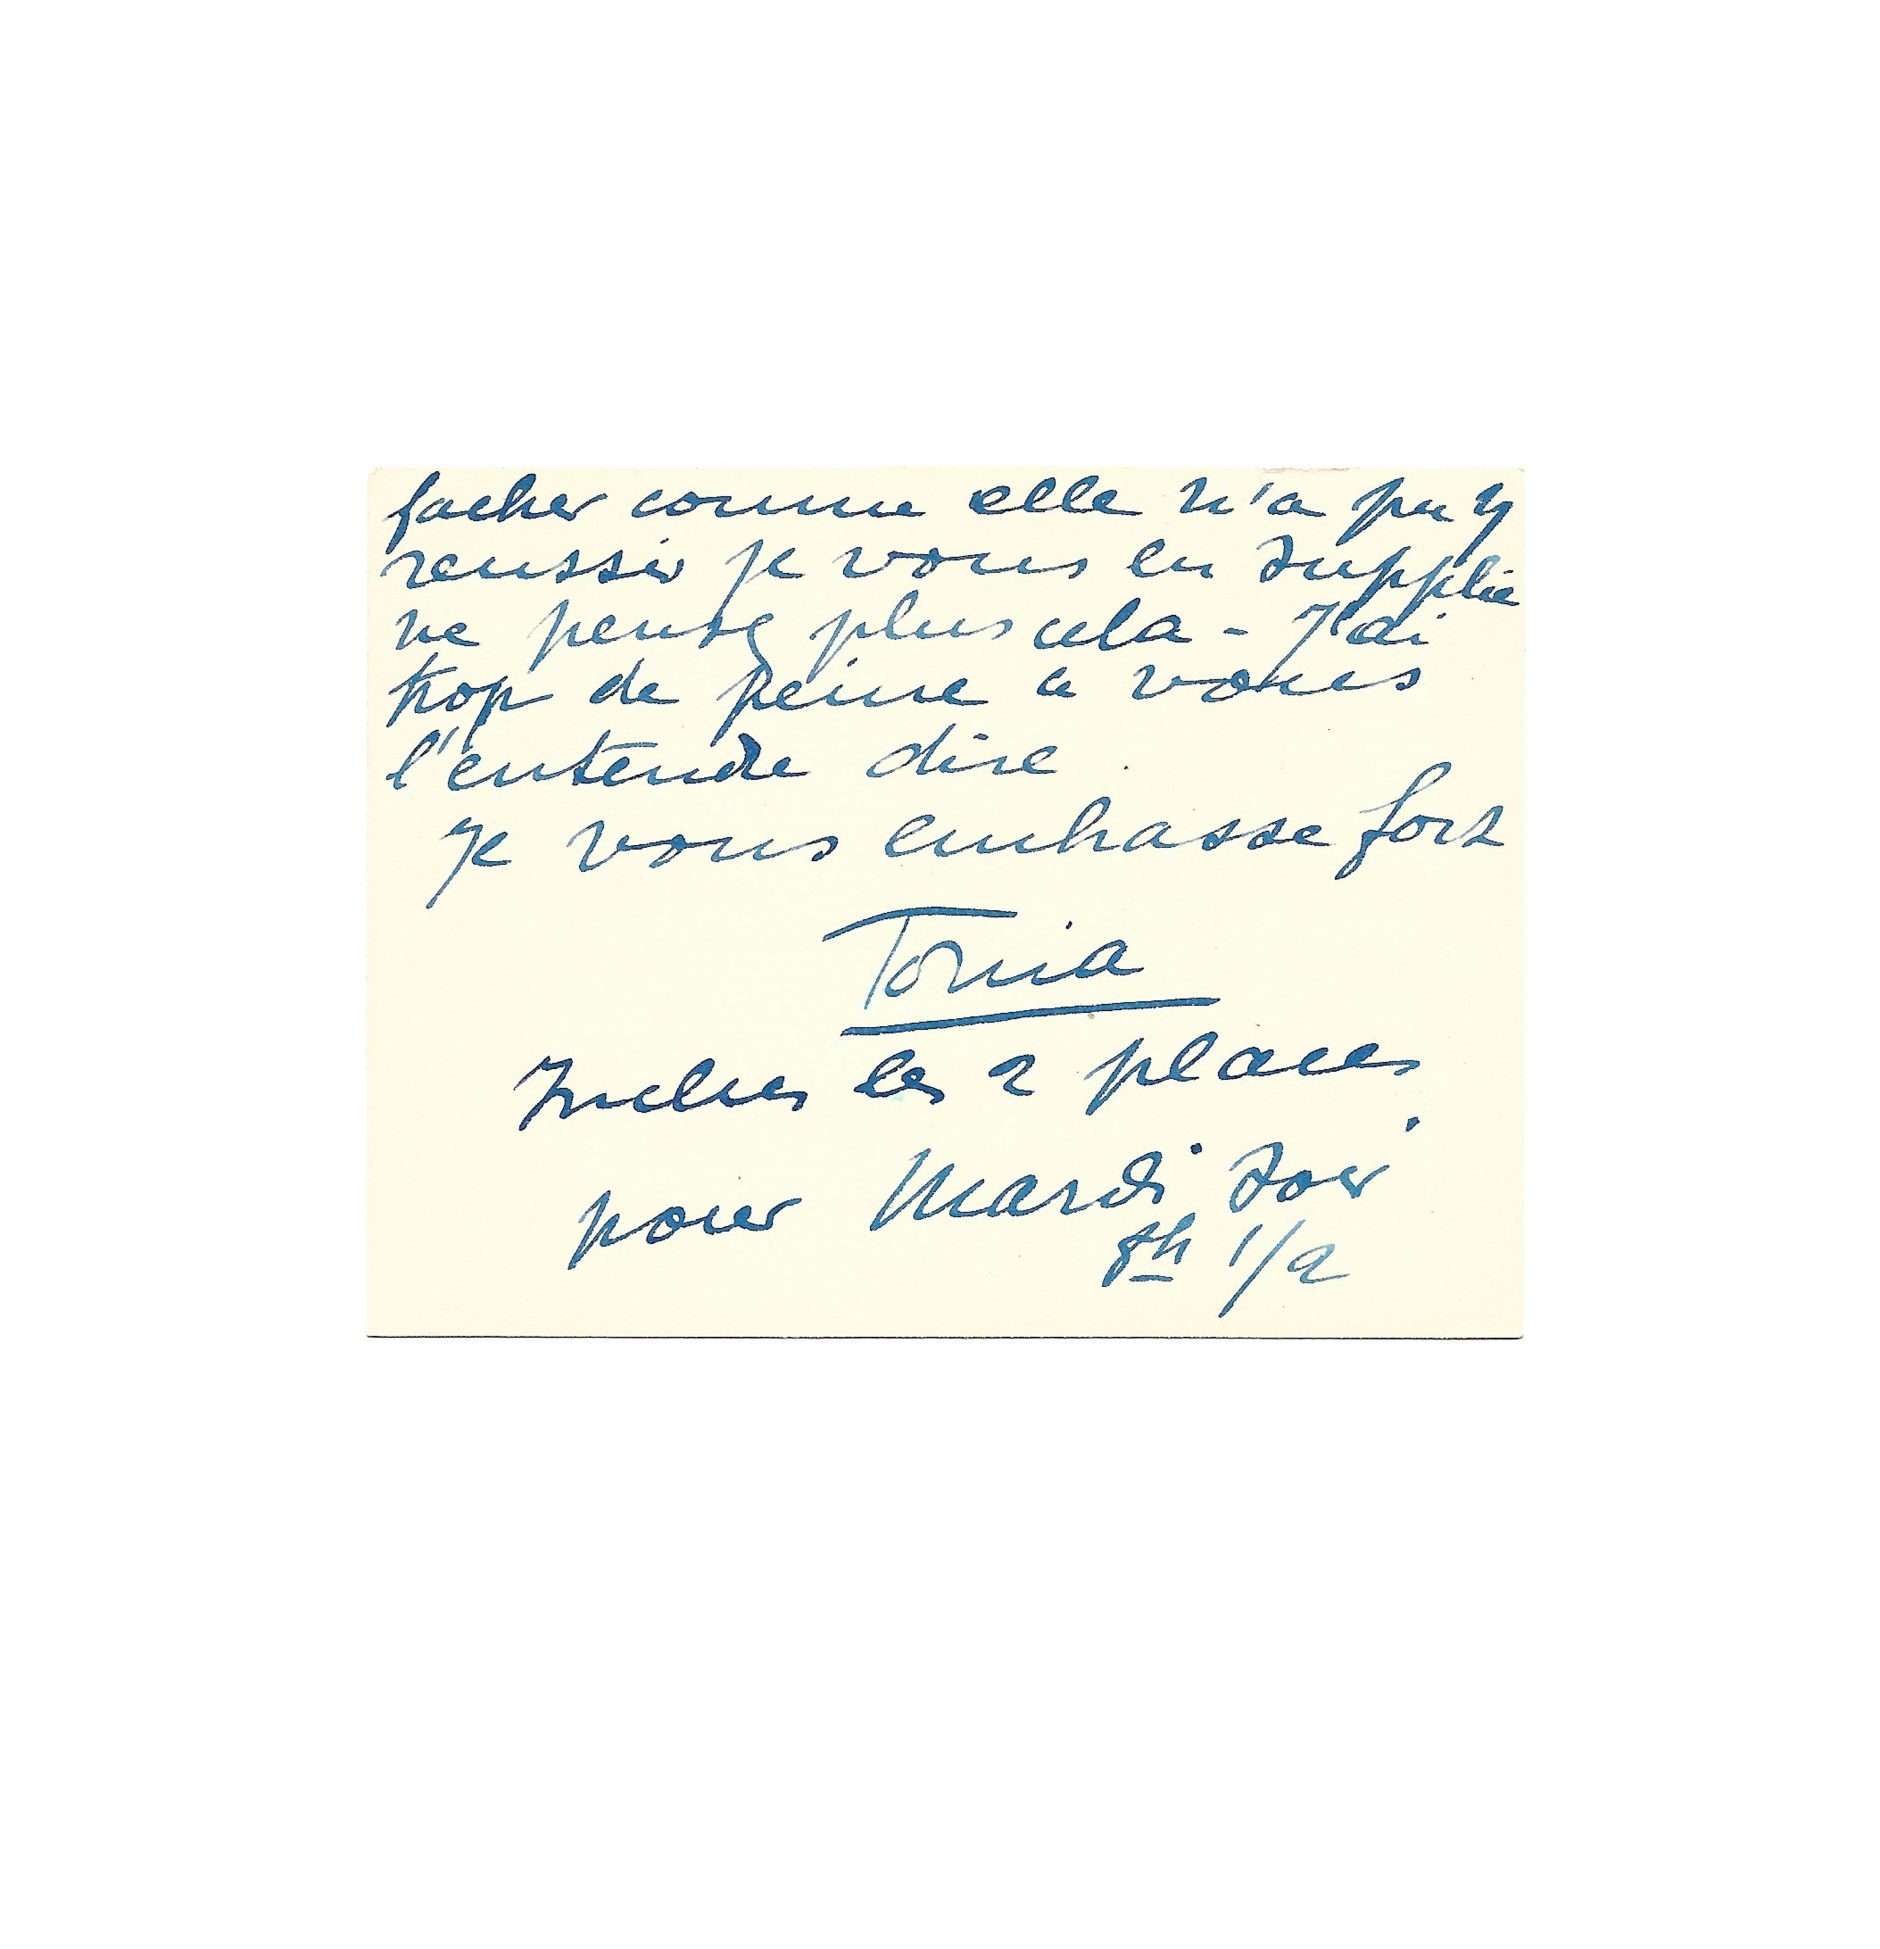 facher comme elle n'a pu y
reussir je vous en supplie
ne pensez plus cela - J'ai
trop de peine a vous
l'entendre dire .
Je vous embrasse fort
Tonia
Inclus les 2 places
pour Mardi soir
8h 1/2